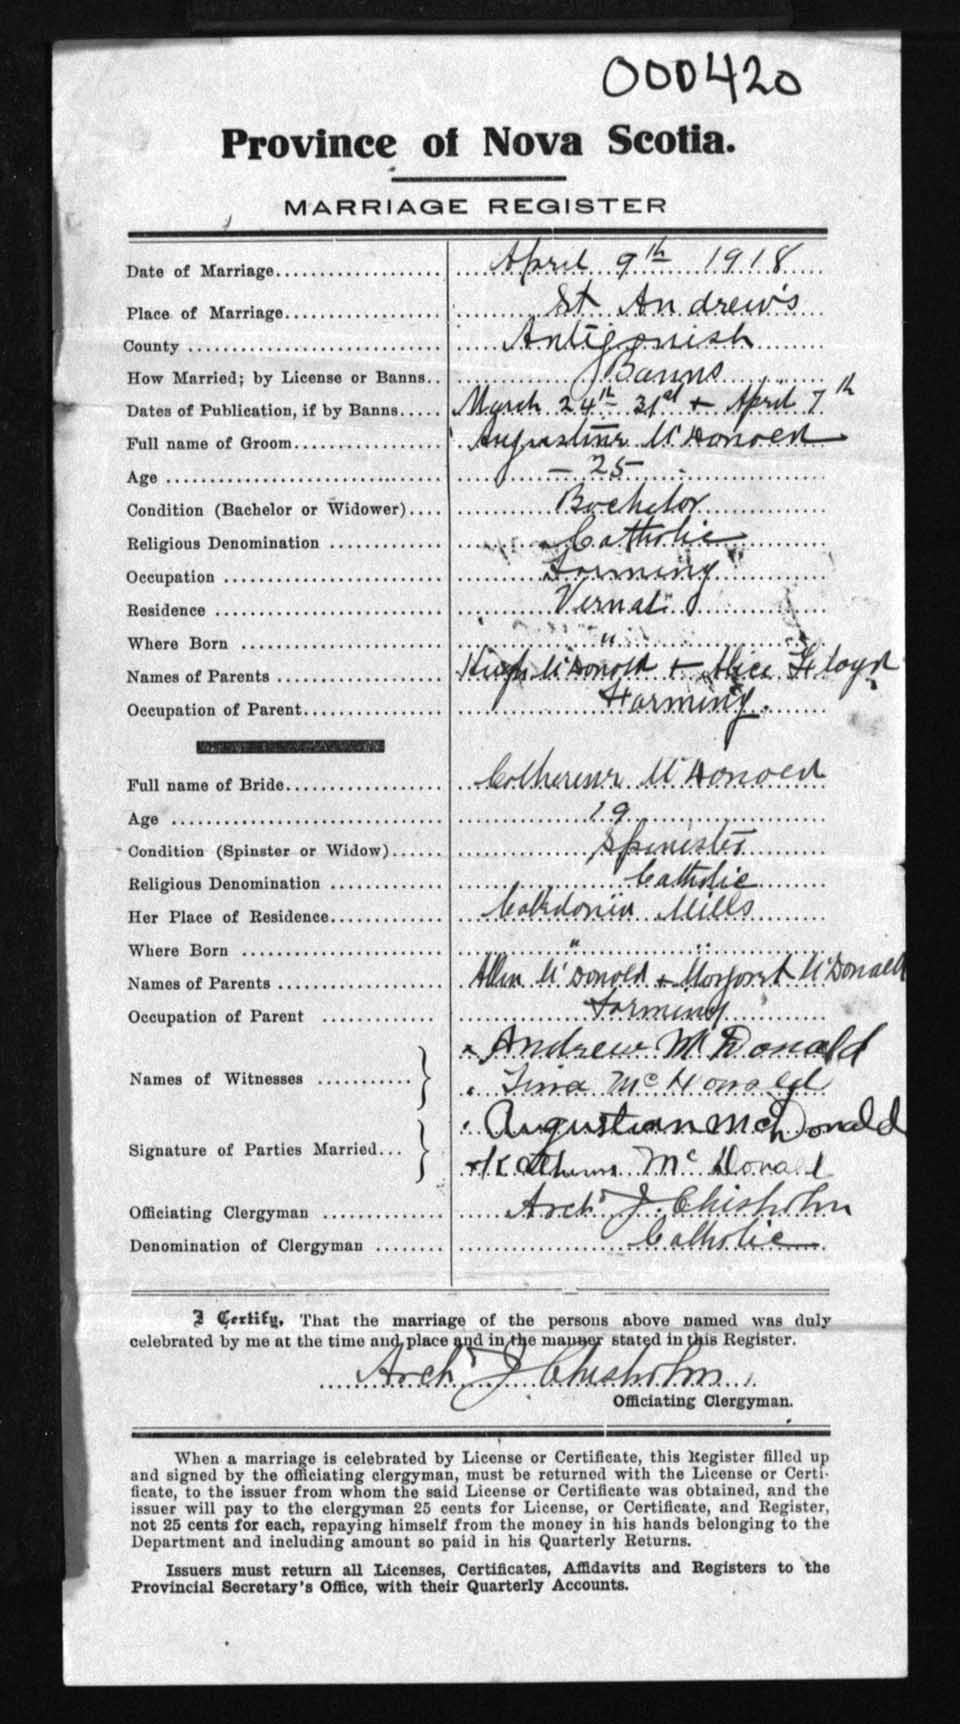 000420
Province of Nova Scotia.
MARRIAGE REGISTER
Date of Marriage April 9th 1918
Place of Marriage St Andrew's
County Antigonish
How Married; by License or Banns.. Banns
Dates of Publication, if by Banns March 24th 31st + April 7th
Full name of Groom Augustine McDonald
Age — 25 —
Condition (Bachelor or Widower) Bachelor
Religious Denomination Catholic
Occupation Farming
Residence Vernal
Where Born "
Names of Parents Hugh McDonald + Alice Floyd
Occupation of Parent Farming.
Full name of Bride Catherine McDonald
Age 19
Condition (Spinster or Widow) Spinister
Religious Denomination Catholic
Her Place of Residence Caledonia Mills
Where Born " "
Names of Parents Allan McDonald + Margaret McDonald
Occupation of Parent Farming
Names of Witnesses Andrew McDonald
Tina McDonald
Signature of Parties Married... Augustian McDonald
Katherine McDonald
Officiating Clergyman Archd J. Chisholm
Denomination of Clergyman Catholic
I Certify, That the marriage of the persons above named was duly
celebrated by me at the time and place and in the manner stated in this Register.
Archd J. Chisholm
Officiating Clergyman.
When a marriage is celebrated by License or Certificate, this Register filled up
and signed by the officiating clergyman, must be returned with the License or Certi-
ficate, to the issuer from whom the said License or Certificate was obtained, and the
issuer will pay to the clergyman 25 cents for License, or Certificate, and Register,
not 25 cents for each, repaying himself from the money in his hands belonging to the
Department and including amount so paid in his Quarterly Returns.
Issuers must return all Licenses, Certificates, Affidavits and Registers to the
Provincial Secretary's Office, with their Quarterly Accounts.